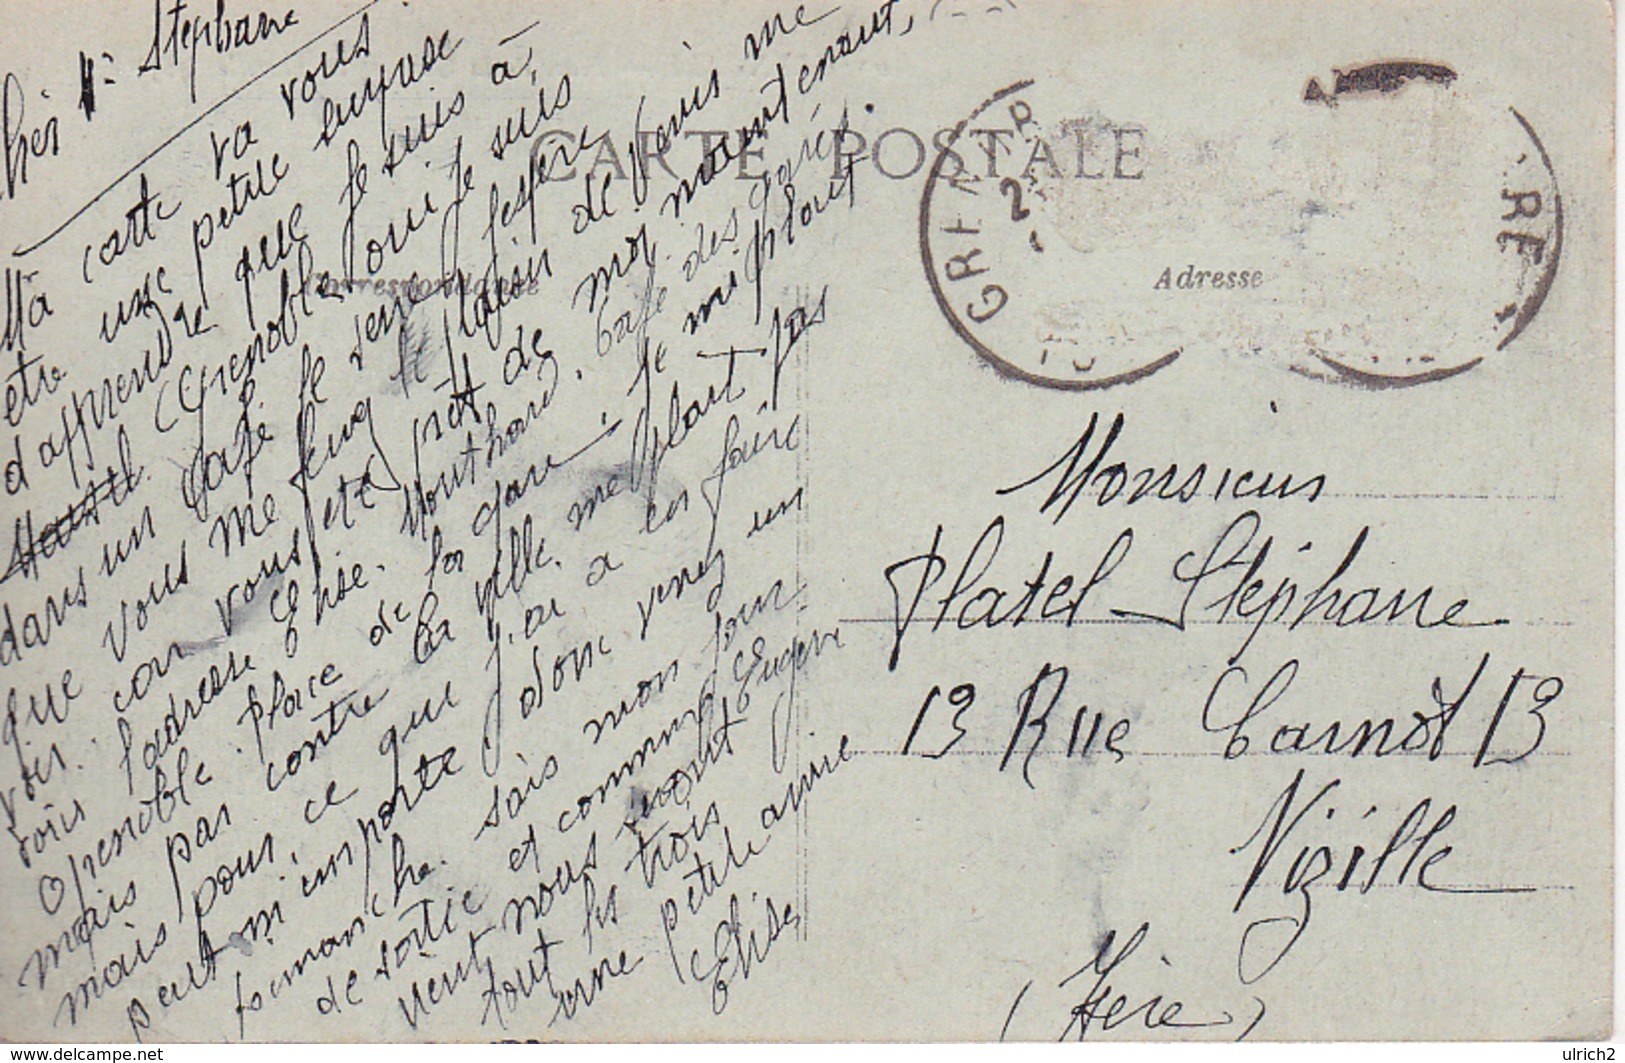 Cher Mr Stéphane
Ma carte va vous
être une petite surprise
d'apprendre que je suis à
Grenoble oui je suis
dans un café je serre j'espère
que vous me le plaisir de venir me
voir. car vous êtes prêt de moi maintenant,
voici l'adresse Elise. Mouthard. Café des Gares.
Grenoble. Place de la gare. je mi plait
mais par contre la ville me plait pas
mais pour ce que j'ai a en faire
peut m'importe, donc venez un
dimanche. sais mon jour
de sortie et comme Eugene
vient nous seront
tout les trois
une petite amie
Elise
CARTE POSTALE
Correspondance
Adresse
GRE
2
RE
Monsieur
Platel Stéphane
13 Rue Carnot 13
Vizille
(Isère)
delcampe.net
ulrich2